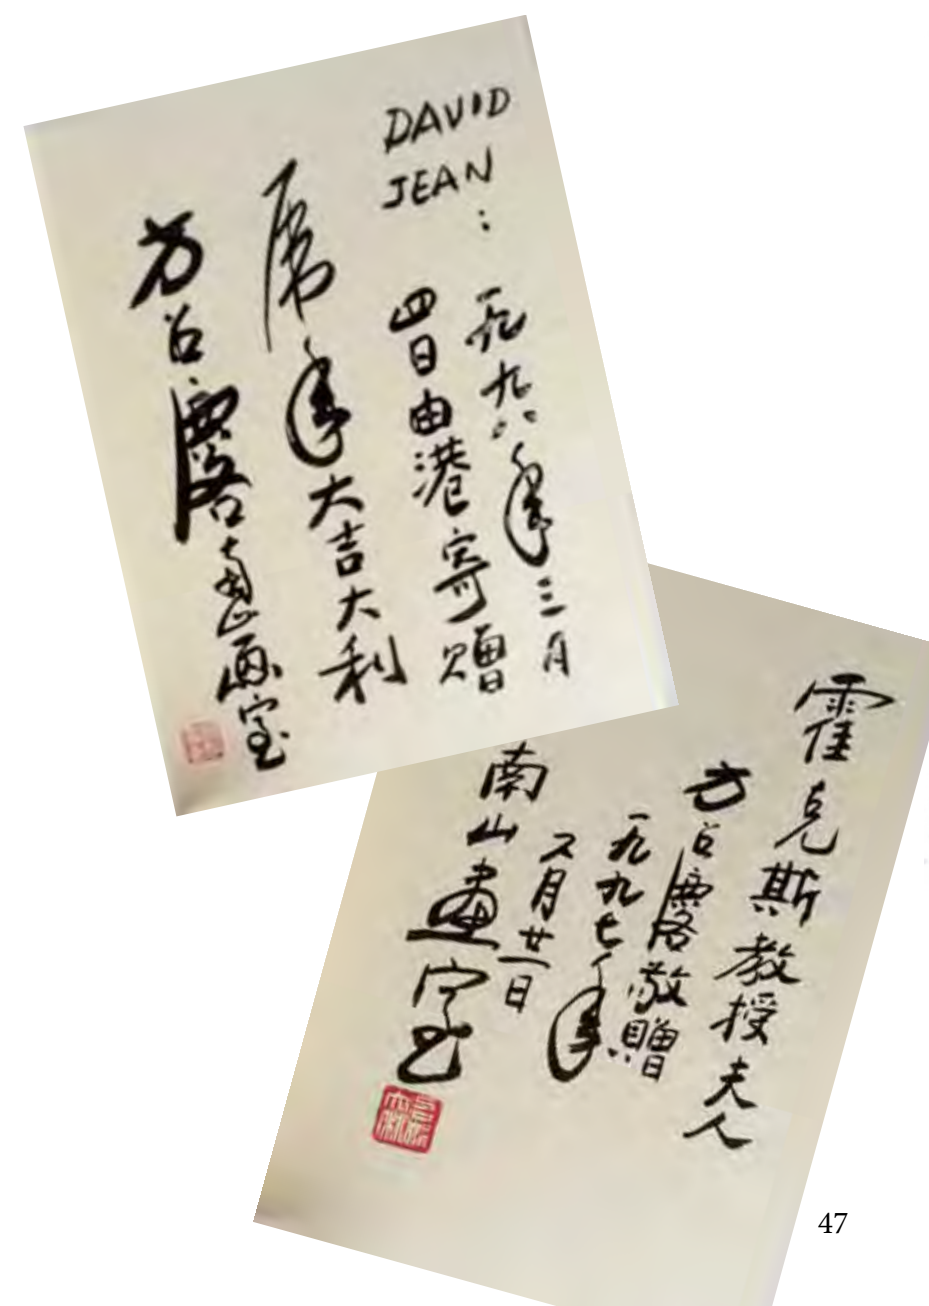 DAVID
JEAN：
一九九八年三月
四日由港寄贈
虎年大吉大利
方召麐南山画室
霍克斯教授夫人
方召麐敬贈
一九九七年
月廿一日
南山畫室
47